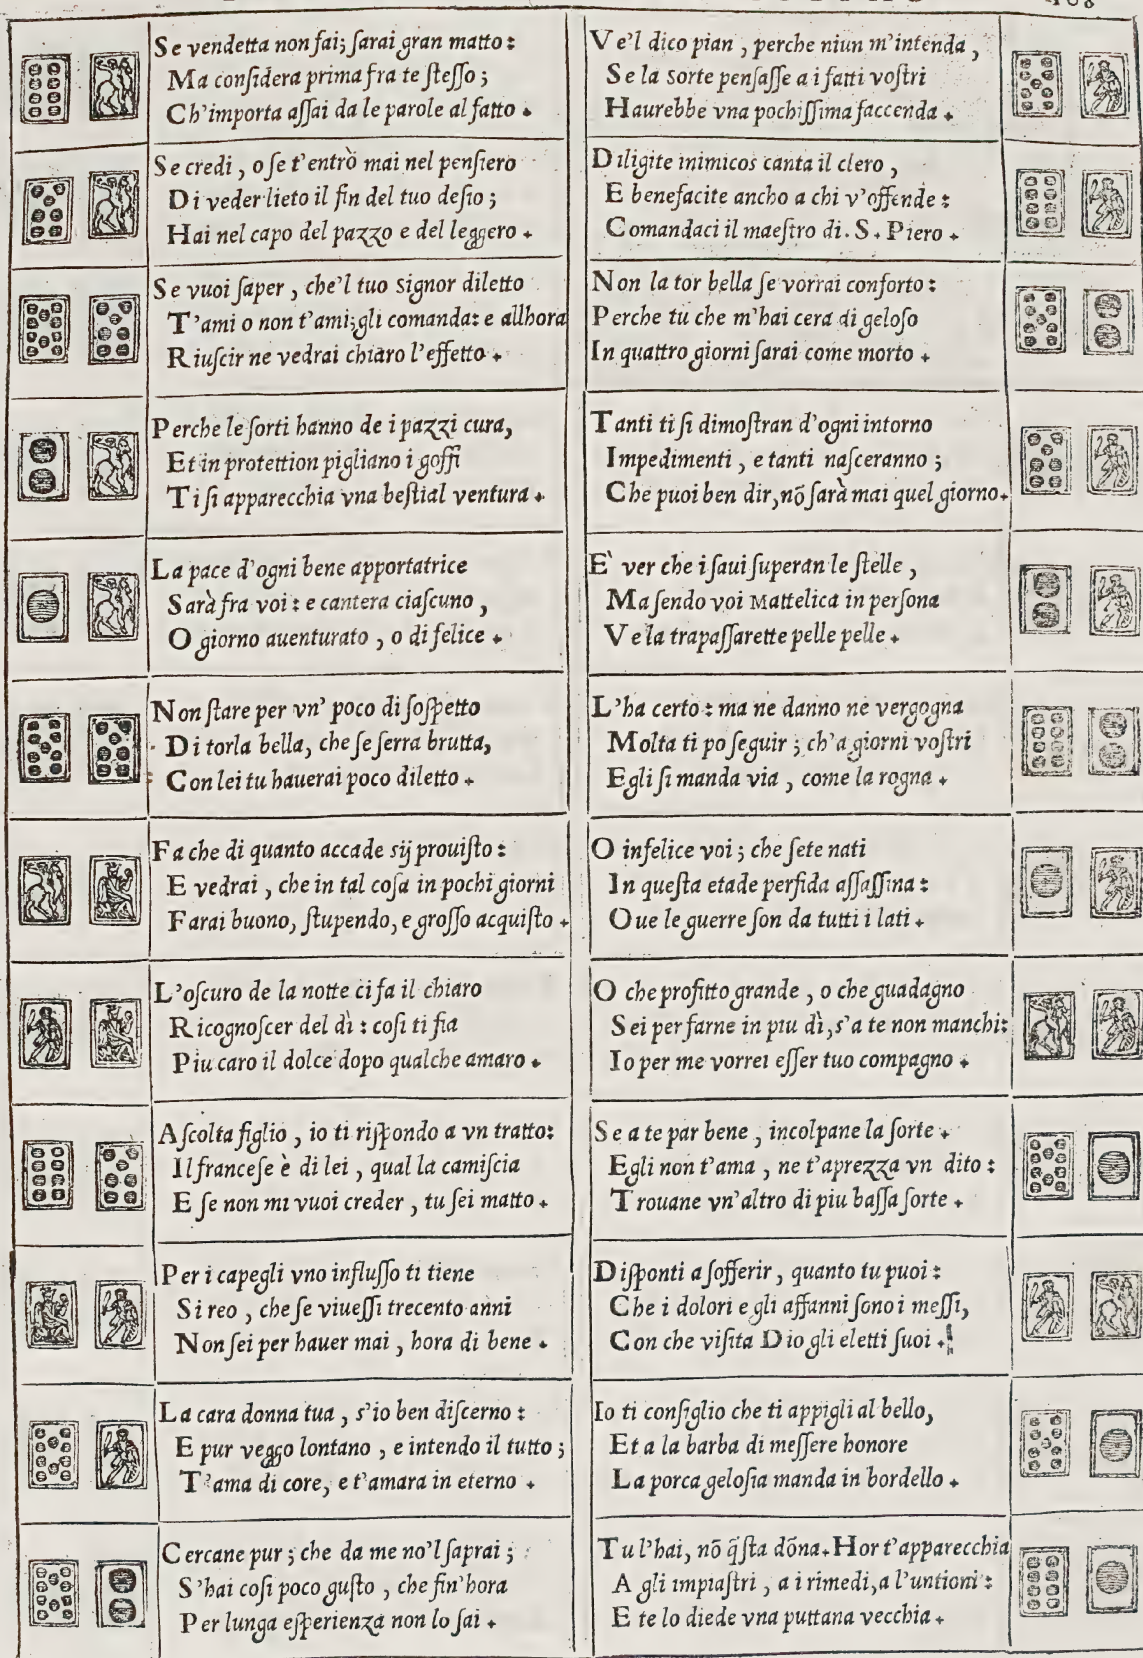 Se vendetta non fai; sarai gran matto:
Ma considera prima fra te stesso;
Ch'importa assai da le parole al fatto.
Se credi, o se t'entrò mai nel pensiero
Di veder lieto il fin del tuo desio;
Hai nel capo del pazzo e del leggero.
Se vuoi saper, che'l tuo signor diletto
T'ami o non t'ami; gli comanda: e allhora
Riuscir ne vedrai chiaro l'effetto.
Perche le sorti hanno de i pazzi cura,
Et in protettion pigliano i goffi
Ti si apparecchia vna bestial ventura.
La pace d'ogni bene apportatrice
Sarà fra voi: e cantera ciascuno,
O giorno auenturato, o di felice.
Non stare per vn' poco di sospetto
Di torla bella, che se serra brutta,
Con lei tu hauerai poco diletto.
Fa che di quanto accade sij prouisto:
E vedrai, che in tal cosa in pochi giorni
Farai buono, stupendo, e grosso acquisto.
L'oscuro de la notte ci fa il chiaro
Ricognoscer del dì: cosi ti fia
Piu caro il dolce dopo qualche amaro.
Ascolta figlio, io ti rispondo a vn tratto:
Il francese è di lei, qual la camiscia
E se non mi vuoi creder, tu sei matto.
Per i capegli vno influsso ti tiene
Si reo, che se viuessi trecento anni
Non sei per hauer mai, hora di bene.
La cara donna tua, s'io ben discerno:
E pur veggo lontano, e intendo il tutto;
T'ama di core, e t'amara in eterno.
Cercane pur; che da me no'l saprai;
S'hai cosi poco gusto, che fin'hora
Per lunga esperienza non lo sai.
Ve'l dico pian, perche niun m'intenda,
Se la sorte pensasse a i fatti vostri
Haurebbe vna pochissima faccenda.
Diligite inimicos canta il clero,
E benefacite ancho a chi v'offende:
Comandaci il maestro di. S. Piero.
Non la tor bella se vorrai conforto:
Perche tu che m'hai cera di geloso
In quattro giorni sarai come morto.
Tanti ti si dimostran d'ogni intorno
Impedimenti, e tanti nasceranno;
Che puoi ben dir, nõ sarà mai quel giorno.
E' ver che i saui superan le stelle,
Ma sendo voi Mattelica in persona
Ve la trapassarette pelle pelle.
L'ha certo: ma ne danno ne vergogna
Molta ti po seguir; ch'a giorni vostri
Egli si manda via, come la rogna.
O infelice voi; che sete nati
In questa etade perfida assassina:
Oue le guerre son da tutti i lati.
O che profitto grande, o che guadagno
Sei per farne in piu dì, s'a te non manchi:
Io per me vorrei esser tuo compagno.
Se a te par bene, incolpane la sorte.
Egli non t'ama, ne t'aprezza vn dito:
Trouane vn'altro di piu bassa sorte.
Disponti a sofferir, quanto tu puoi:
Che i dolori e gli affanni sono i messi,
Con che visita Dio gli eletti suoi.
Io ti consiglio che ti appigli al bello,
Et a la barba di messere honore
La porca gelosia manda in bordello.
Tu l'hai, nõ q̃sta dõna. Hor t'apparecchia
A gli impiastri, a i rimedi, a l'untioni:
E te lo diede vna puttana vecchia.